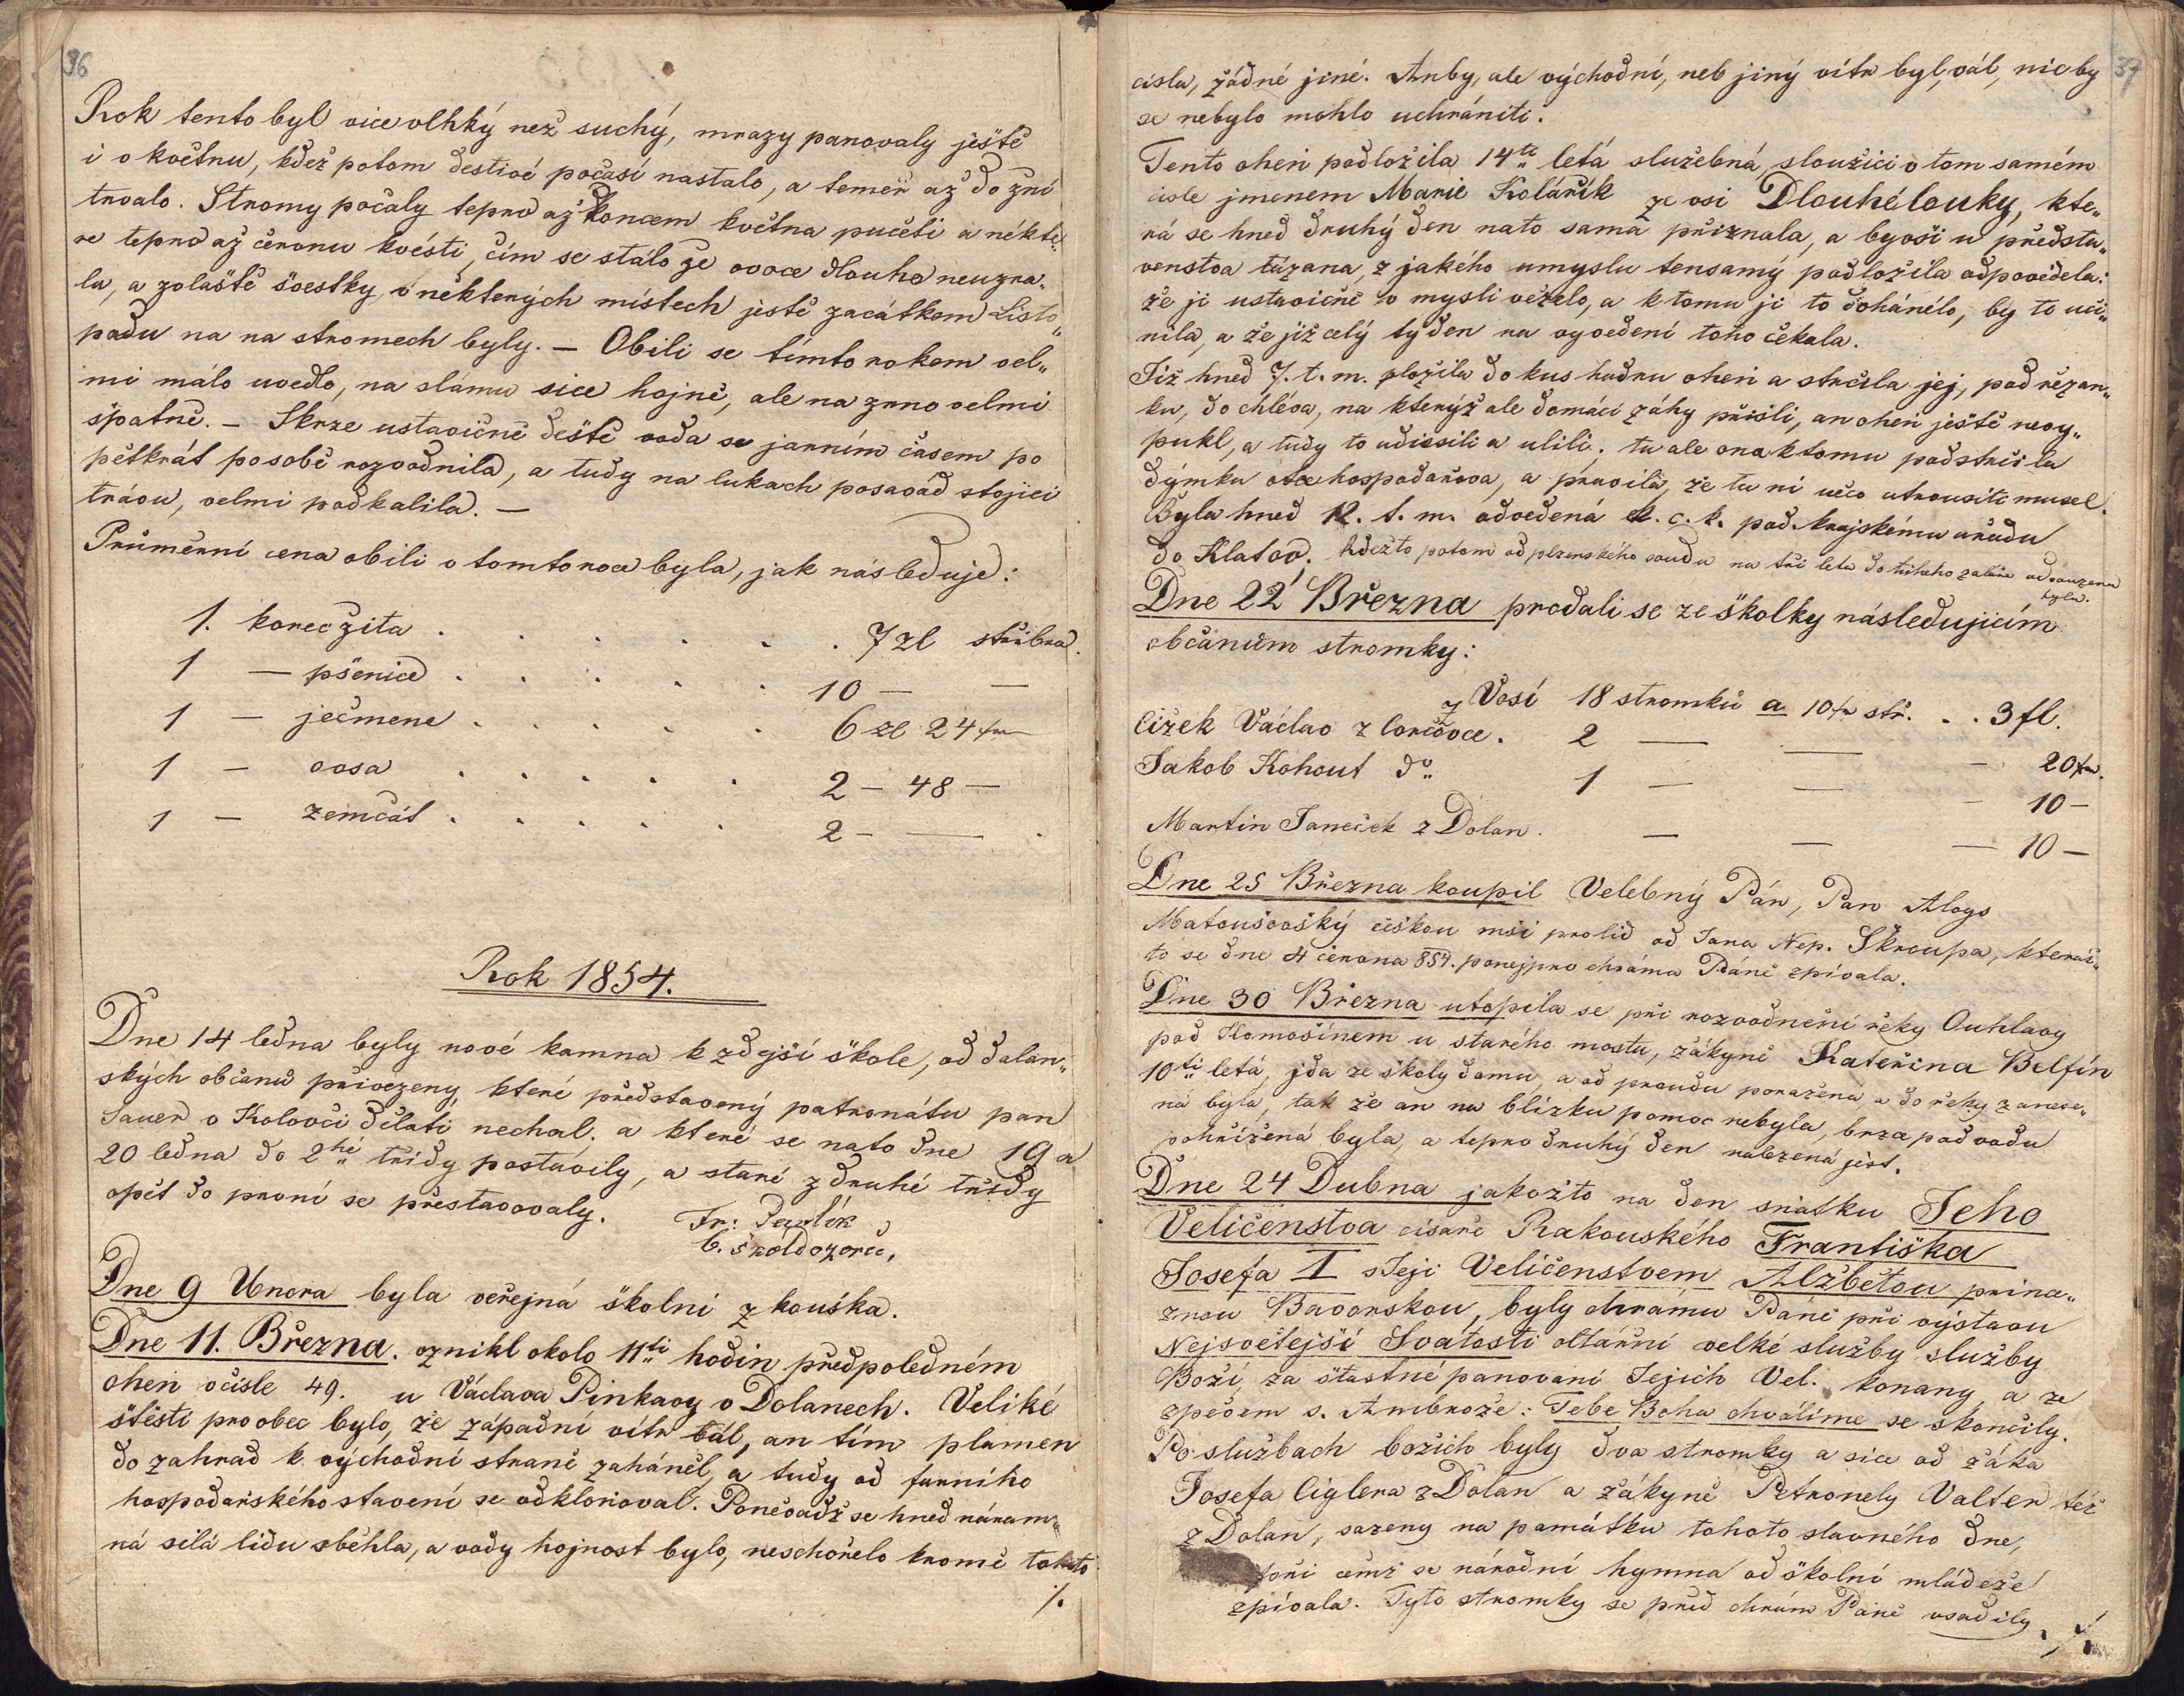 36
Rok tento byl vice vlhký než suchý, mrazy panovaly ještě
i v květnu, kdež potom destivé počasí nastalo, a temeř až do žní
trvalo. Stromy počaly teprv až koncem května pučeti a někte„
re teprv až červnu kvésti, čím se stálo že ovoce dlouho neuzra„
la, a zvláště švestky, v některých místech jestě začátkem Listo„
padu na na stromech byly. — Obili se tímto rokem vel„
mi málo uvedlo, na slámu sice hojně, ale na zrno velmi
špatně. — Skrze ustavičné deště voda se jarním časem po
pětkrát po sobě rozvodnila, a tudy na lukach posavád stojici
trávu, velmi podkalila. —
Průměrní cena obili v tomto roce byla, jak následuje:
1. korec žita . . . . . . 7 zl stříbra.
1 — pšenice . . . . . 10 — —
1 — ječmene . . . . . 6 zl 24 kr
1 — ovsa . . . . . . 2 — 48 —
1 — zemčát . . . . . . 2 — — .
Rok 1854.
Dne 14 ledna byly nové kamna k zdejší škole, od dolan„
ských občanů přivezeny, které představený patronátu pan
Sauer v Kolovči dělati nechal. a které se nato dne 19 a
20 ledna do 2hé třídy postavily, a staré z druhé třídy
opět do první se přestavovaly.
Fr:
b. školdozorce,
Dne 9 Unora byla veřejná školní zkouška.
Dne 11. Března. vznikl okolo 11ti hodin předpoledném
oheň v čisle 49. u Václava Pinkavy v Dolanech. Veliké
štěsti pro obec bylo, že západní vítr vál, an tím plamen
do zahrad k východní straně zaháněl, a tudy od farního
hospodařského stavení se odkloňoval. Poněvadž se hned náram„
ná silá lidu sběhla, a vody hojnost bylo, neschořelo kromě tohoto
⁒
37
cisla, žádné jiné. Anby, ale východní, neb jiný vítr byl, vál, nic by
se nebylo mohlo uchrániti.
Tento oheň podložila 14ti letá služebná, sloužici v tom samém
cisle jmenem Marie Kolářík ze vsi Dlouhélouky, kte„
rá se hned druhý den nato sama přiznala, a byvši u předsta„
venstva tázana, z jakého umyslu tensamý podložila odpověděla:
že ji ustavičně v mysli vězelo, a k tomu ji to dohánělo, by to uči„
nila, a že již celý tyden na vyvedení toho čekala.
Již hned 7. t. m. vložila do kus hadru oheň a strčila jej, pod řezan„
ku, do chléva, na kterýž ale domácí záhy přišli, an oheň ještě nevy„
pukl, a tudy to udiesili a ulili. tu ale ona k tomu podstrčila
dýmku otce hospodařova, a pravila, že tu ni něco utrousiti musel.
Byla hned 12. t. m. odvedená k. c. k. pod. krajskému uřadu
do Klatov. kdežto potom od plzenského soudu na tři leta do těžkeho žaláře odsouzena
byla.
Dne 22 Března prodali se ze školky následujicím
občanům stromky:
z Vosí 18 stromků a 10 kr stř. . . 3 fl.
Cižek Václav z Corčovce. 2 — — — 20 kr.
Jakob Kohout do 1 — — — 10 —
Martin Janeček z Dolan. — — — 10 —
Dne 25 Března koupil Velebný Pán, Pan Aloys
Matoušovský češkou mši pro lid od Jana Nep. Škroupa, kteraž„
to se dne 4 června 854. ponejprv chrámu Páně zpivala.
Dne 30 Března utopila se při rozvodnění řeky Ouhlavy
pod Komošínem u starého mostu, žákyně Kateřina Belfín
10ti letá, jda ze školy domu, a od proudu poražena, a do řeky zanese„
ná byla, tak že an na blízku pomoc nebyla, brzo pod vodu
pohřížená byla, a teprv druhý den nalezená jest.
Dne 24 Dubna jakožto na den sňatku Jeho
Veličenstva cisaře Rakouského Františka
Josefa I s Jeji Veličenstvem Alžbětou prina„
znou Bavorskou, byly chramu Páně při výstavu
Nejsvětejší Svátosti oltářní velké služby služby
Boží, za šťastné panovaní Jejich Vel. konany, a ze
zpěvem s. Ambrože: Tebe Boha chválíme se skončily.
Po službach božich byly dva stromky a sice od žáka
Josefa Ciglera z Dolan a žákyně Petronely Valter též
z Dolan, sazeny na památku tohoto slavného dne,
při čemž se národní hymna od školní mládeže
zpívala. Tyto stromky se před chrám Páně vsadily. ⁒